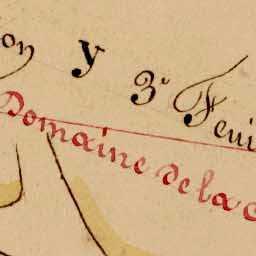 on y 3e Feui
Domaine de la c